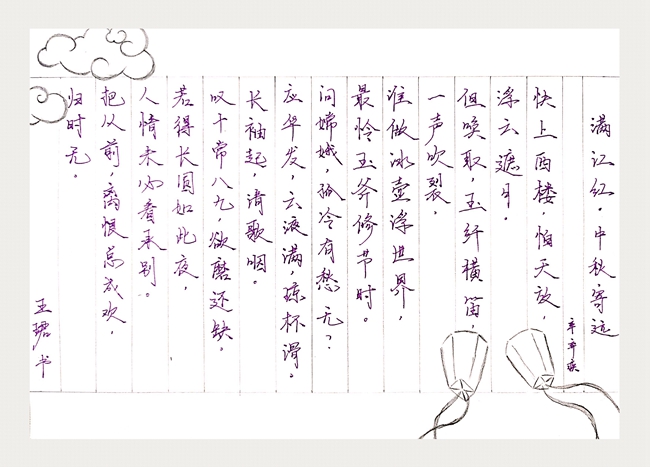 满江红。中秋寄远
辛弃疾
快上西楼，怕天放，
浮云遮月。
但唤取，玉纤横笛，
一声吹裂。
谁做冰壶浮世界，
最怜玉斧修节时。
问嫦娥，孤冷有愁无？
应华发，云液满，琼杯滑。
长袖起，清歌咽。
叹十常八九，欲磨还缺。
若得长圆如此夜，
人情未必看承别。
把从前，离恨总成欢，
归时无。
王珺书